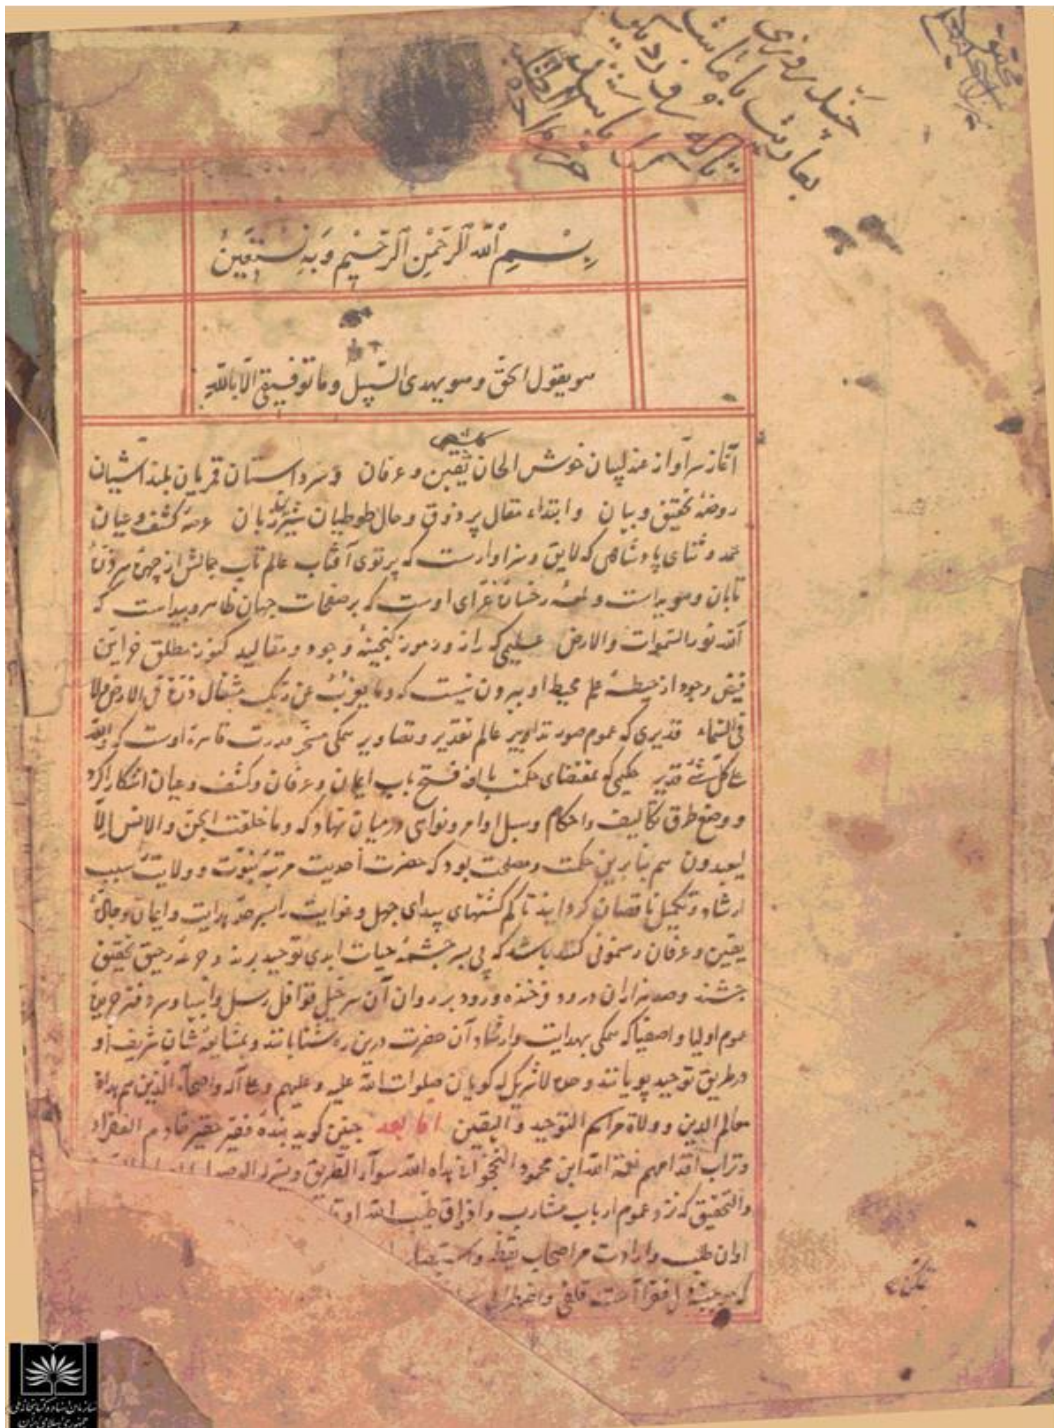 چند روزی
بعاریت با ماست
بِسْمِ اللّٰهِ الرَّحْمٰنِ الرَّحِيْمِ وَبِهِ نَسْتَعِيْنُ
هو يقول الحق وهو يهدى السّبيل وما توفيقى الّا باللّه
آغاز سرآواز عندلیبان خوش الحان یقین و عرفان و سرداستان قمریان بلند آشیان
روضهٔ تحقیق و بیان وابتداء مقال پر ذوق و حال طوطیان شیرین زبان عرصهٔ کشف و عیان
حمد و ثنای پادشاهی که لایق و سزاوارست که پرتوی آفتاب عالم تاب جمالش از چهرهٔ هر ذرّهٔ
تابان و هویداست و لمعهٔ رخسارهٔ غرّای اوست که بر صفحات جهان ظاهر و پیداست که
الله نور السّموات والارض علیمی که راز و رموز گنجینهٔ وجود و مقالید کنوز مطلق خزاین
فیض وجود از حیطهٔ علم محیط او بیرون نیست که وما یعزب عن ربّک مثقال ذرّة فی الارض ولا
فی السّماء قدیری که عموم صور تدابیر عالم تقدیر و تصاویر همکی مسخّر قدرت قاهرهٔ اوست که والله
علی کلّ شئ قدیر حکیمی که بمقتضای حکمت بالغه فتح باب ایمان و عرفان و کشف و عیان آشکارا کرد
و وضع طرق تکالیف و احکام و سبل اوامر و نواهی در میان نهاد که وما خلقت الجنّ والانس الّا
لیعبدون هم بنابرین حکمت و مصلحت بود که حضرت احدیت مرتبهٔ نبوّت و ولایت سبب
ارشاد و تکمیل ناقصان کردانید تا کم کشتهای بیدای جهل و غوایت را بسرحدّ هدایت و ایمان و
یقین و عرفان رهنمونی کنند باشد که پی بسرچشمهٔ حیات ابدی توحید برند و جرعهٔ رحیق تحقیق
چشند و صد هزاران درود فرخنده ورود بر روان آن سرخیل قوافل رسل و انبیا و سردفتر
عموم اولیا و اصفیا که همکی بهدایت و ارشاد آن حضرت درین ره شتابانند و بمتابعهٔ شان شریف او
در طریق توحید پویانند وحده لا شریک له کویان صلوات الله علیه وعلیهم وعلی آله واصحابه الّذین هم هداة
معالم الدین وولاة مراسم التوحید والیقین امّا بعد چنین کوید بندهٔ فقیر حقیر خادم الفقراء
وتراب اقدامهم نعمة الله ابن محمود النخجوانی هداه الله سواء الطّریق
والتحقیق که نزد عموم ارباب مشارب و اذواق
اوان طلب و ارادت مر اصحاب یقظه
دل فقرا قلقی و اضطرابی
سازمان اسناد و کتابخانه ملی
جمهوری اسلامی ایران